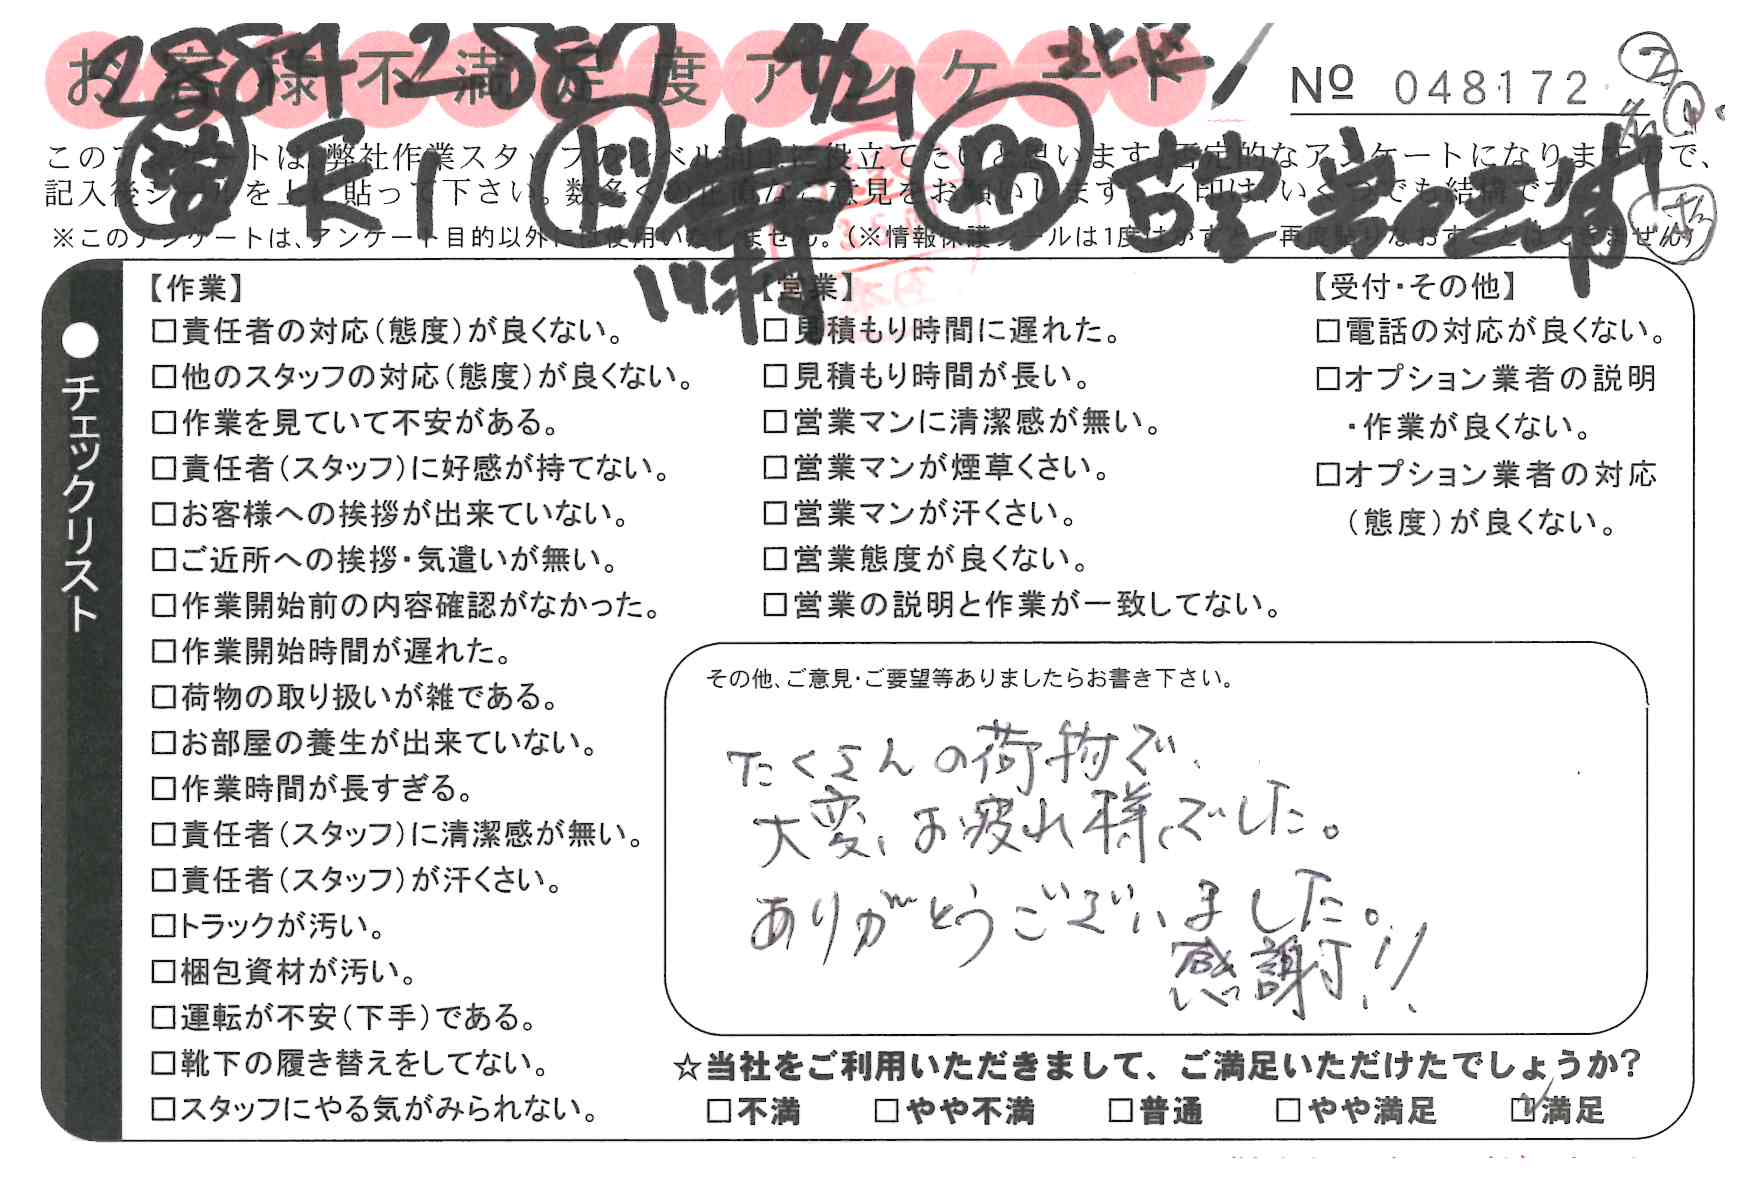 お客様不満足度アンケート
2884 2887 9/21 北区
Nº 048172
このアンケートは、弊社作業スタッフのレベル向上に役立てたいと思います。否定的なアンケートになりますので、
記入後シールを上に貼って下さい。数多くの正直なご意見をお願いします。レ印は、いくつでも結構です。
※このアンケートは、アンケート目的以外には使用いたしません。(※情報保護シールは1度はがすと、再度貼りなおすことはできません)
●チェックリスト
【作業】
□責任者の対応(態度)が良くない。
□他のスタッフの対応(態度)が良くない。
□作業を見ていて不安がある。
□責任者(スタッフ)に好感が持てない。
□お客様への挨拶が出来ていない。
□ご近所への挨拶・気遣いが無い。
□作業開始前の内容確認がなかった。
□作業開始時間が遅れた。
□荷物の取り扱いが雑である。
□お部屋の養生が出来ていない。
□作業時間が長すぎる。
□責任者(スタッフ)に清潔感が無い。
□責任者(スタッフ)が汗くさい。
□トラックが汚い。
□梱包資材が汚い。
□運転が不安(下手)である。
□靴下の履き替えをしてない。
□スタッフにやる気がみられない。
【営業】
□見積もり時間に遅れた。
□見積もり時間が長い。
□営業マンに清潔感が無い。
□営業マンが煙草くさい。
□営業マンが汗くさい。
□営業態度が良くない。
□営業の説明と作業が一致してない。
【受付・その他】
□電話の対応が良くない。
□オプション業者の説明
・作業が良くない。
□オプション業者の対応
(態度)が良くない。
その他、ご意見・ご要望等ありましたらお書き下さい。
たくさんの荷物で、
大変、お疲れ様でした。
ありがとうございました。
感謝!!
☆当社をご利用いただきまして、ご満足いただけたでしょうか?
□不満 □やや不満 □普通 □やや満足 ☑満足